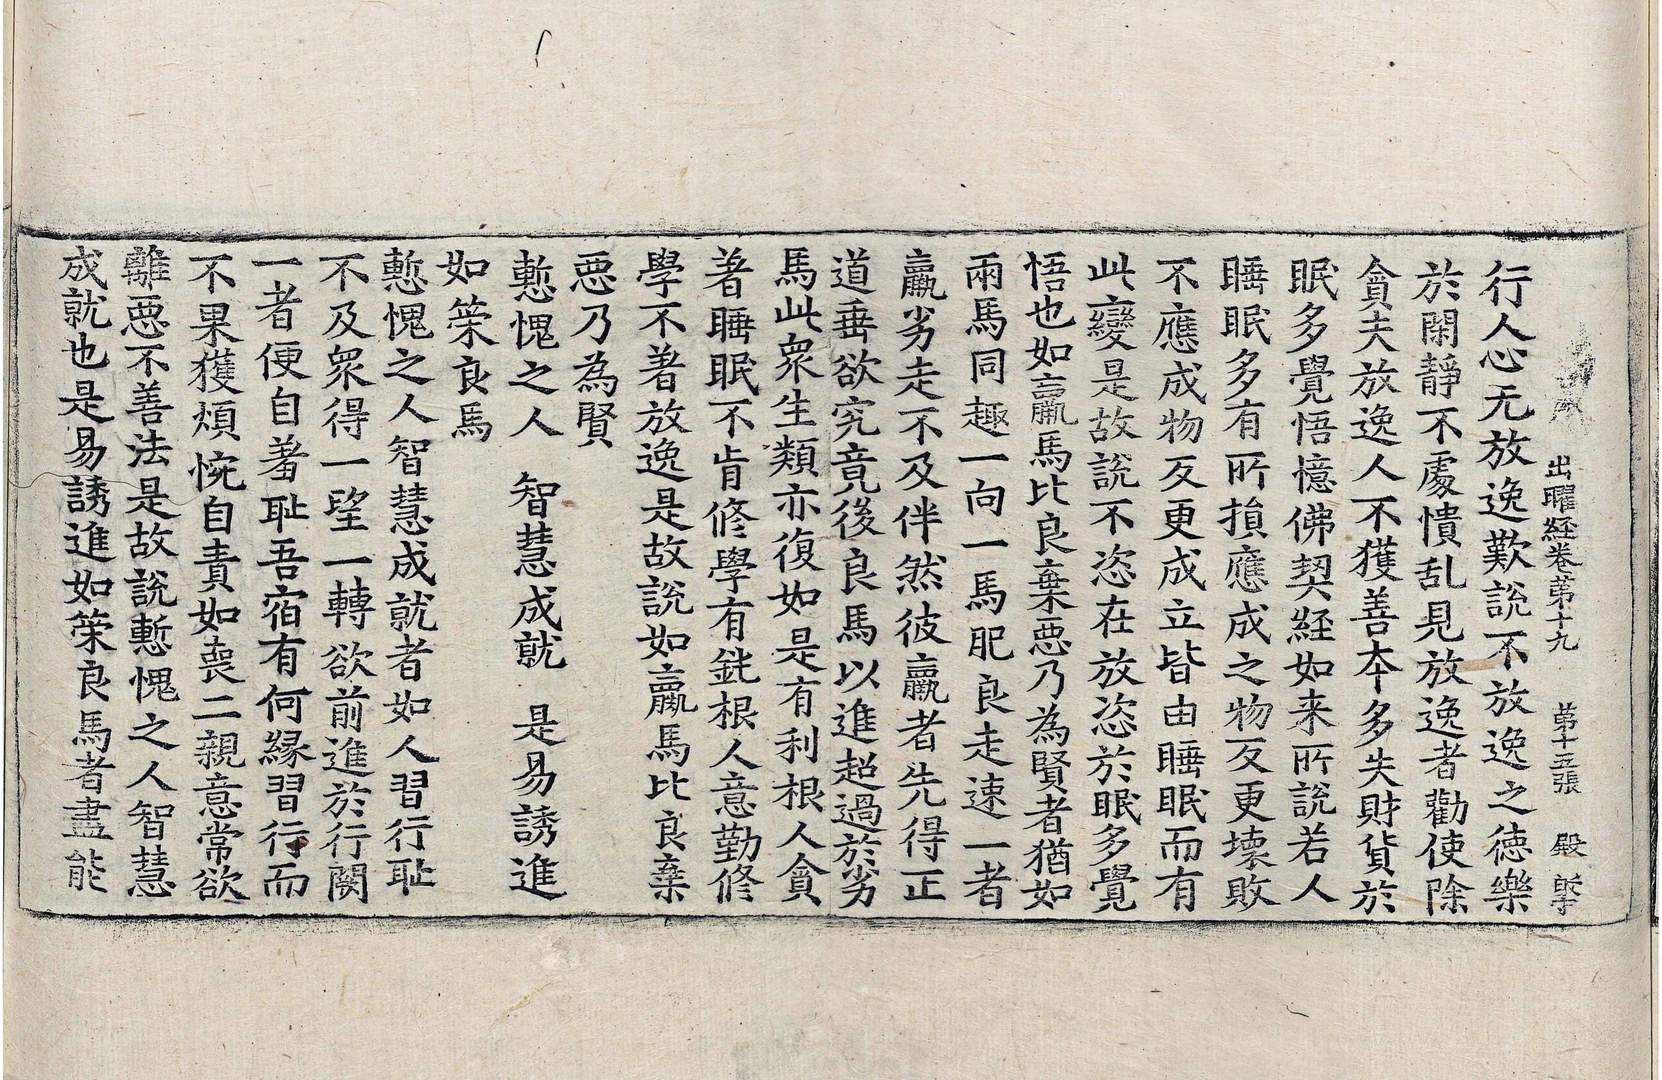 出曜経卷苐十九 苐十五張 殿
行人心无放逸歎說不放逸之徳樂
於閑靜不處憒乱見放逸者勸使除
貪夫放逸人不獲善夲多失財貨於
眠多覺悟憶佛契経如来所說若人
睡眠多有所損應成之物反更壊敗
不應成物反更成立皆由睡眠而有
此變是故說不恣在放恣於眠多覺
悟也如羸馬比良棄惡乃為賢者猶如
兩馬同趣一向一馬肥良走速一者
羸劣走不及伴然彼羸者先得正
道垂欲究竟後良馬以進超過於劣
馬此衆生類亦復如是有利根人貪
著睡眠不肯修學有鈍根人意勤修
學不著放逸是故說如羸馬比良棄
惡乃為賢
慙愧之人 智慧成就 是易誘進
如策良馬
慙愧之人智慧成就者如人習行恥
不及衆得一望一轉欲前進於行闕
一者便自羞恥吾宿有何縁習行而
不果獲煩惋自責如喪二親意常欲
離惡不善法是故說慙愧之人智慧
成就也是易誘進如策良馬者盡能